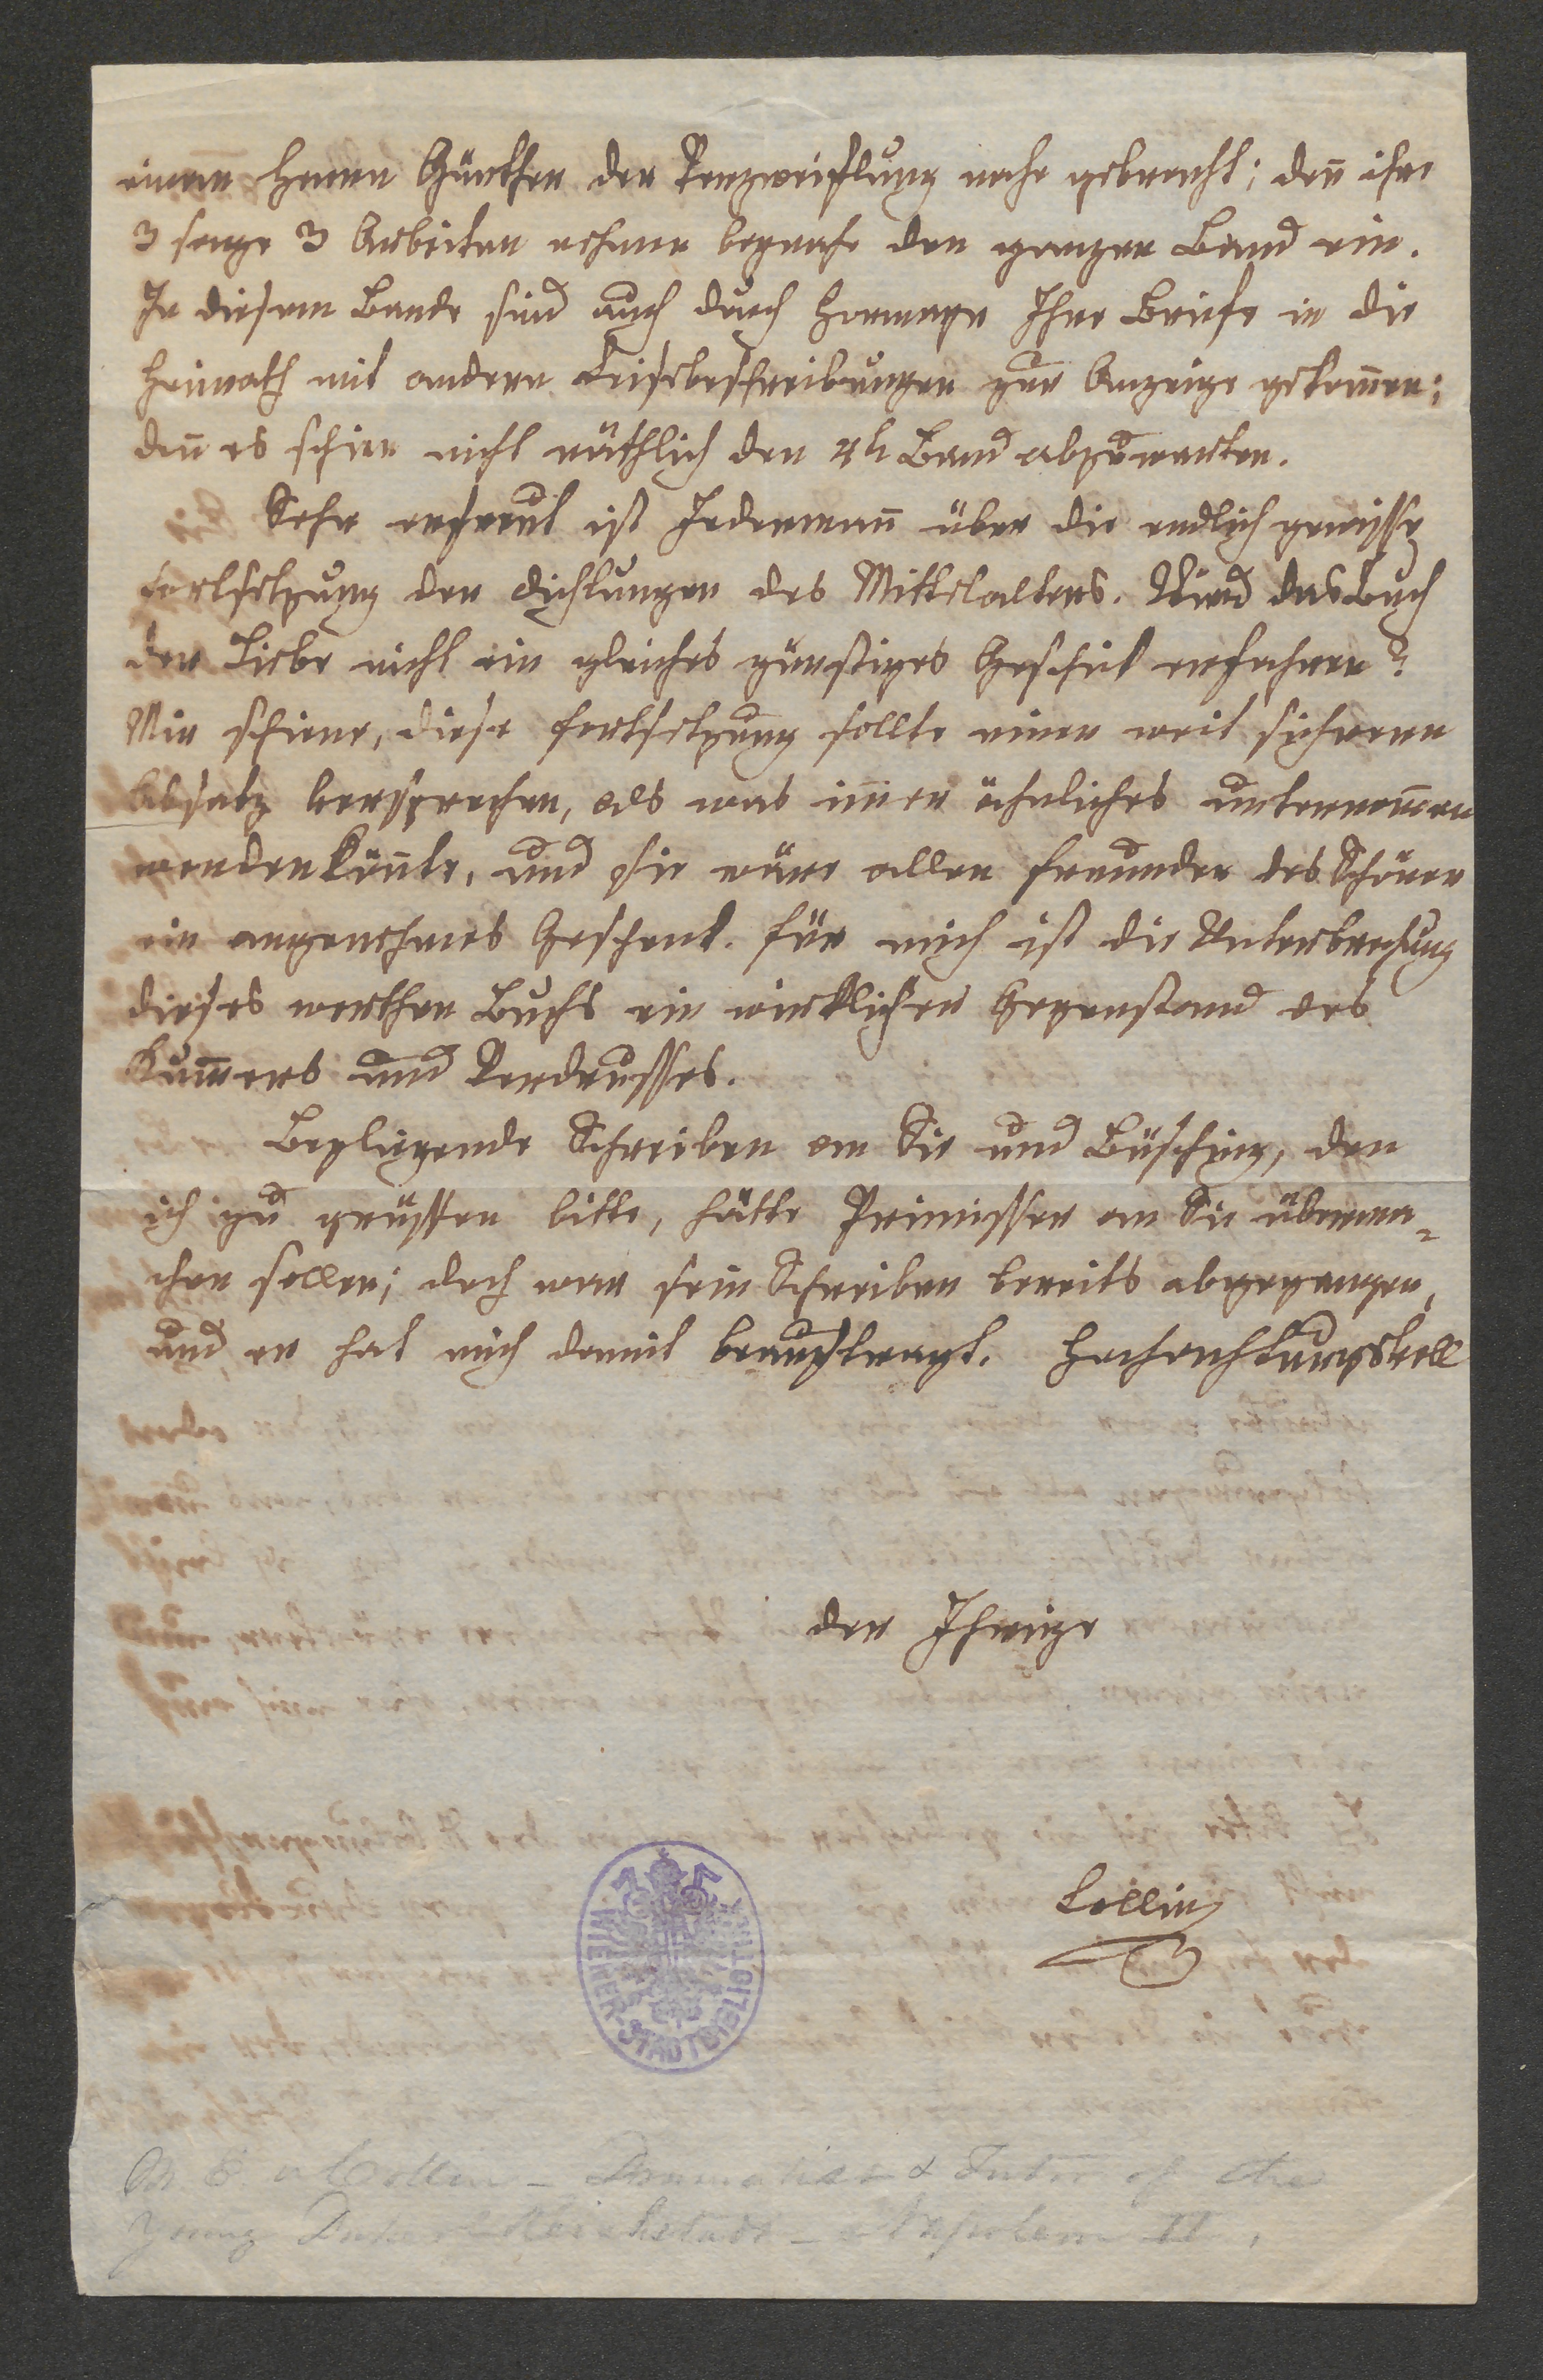 einem Herrn Günther der Verzweiflung nahe gebracht; deñ ihre
3 sage 3 Arbeiten nehmen beynahe den ganzen Band ein.
In diesem Bande sind auch durch Hormayr Ihre Briefe in die
Heimath mit andern Reisebeschreibungen zur Anzeige gekom̄en;
deñ es schien nicht räthlich den 4t Band abzuwarten.
Sehr erfreut ist Jedermañ über die endlich gewisse
Fortsetzung der Dichtungen des Mittelalters. Wird das Buch
der Liebe nicht ein gleiches günstiges Geschik erfahren?
Mir schiene, diese Fortsetzung sollte einen weit sicherern
Absatz versprechen, als was im̄er ähnliches unternom̄en
werden köñte, und sie wäre allen Freunden des Schönen
ein angenehmes Geschenk. Für mich ist die Unterbrechung
dieses werthen Buchs ein wirklicher Gegenstand des
Kum̄ers und Verdrusses.
Beyliegende Schreiben an Sie und Büsching, den
ich zu grüssen bitte, hätte Primisser an Sie überma-
chen sollen; doch war sein Schreiben bereits abgegangen,
und er hat mich damit beauftragt. Hochachtungsvoll
der Ihrige
Collin
WIENER-STADTBIBLIOTHEK
M C. v Collin – Dramatist & Tutor of the
young Duke of Reichstadt – Napoleon II.